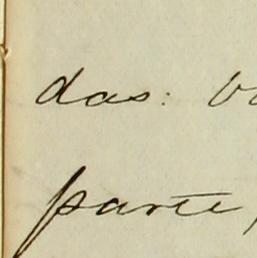 das:
parte,